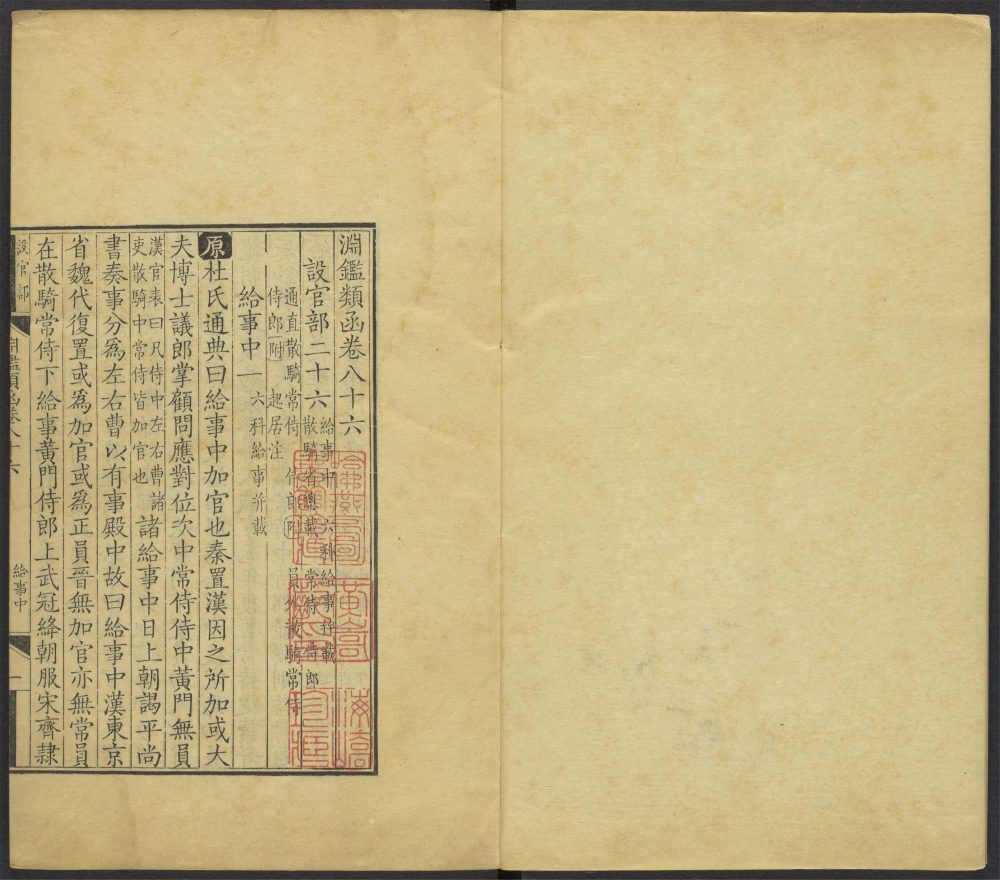 淵鑑類函卷八十六
設官部二十六
給事中 六科給事幷載
散騎省總載 常侍 侍郎
通直散騎常侍 侍郎附 員外散騎常侍
侍郎附 起居注
給事中一
六科給事幷載
原杜氏通典曰給事中加官也秦置漢因之所加或大
夫博士議郎掌顧問應對位次中常侍侍中黃門無員
漢官表曰凡侍中左右曹諸
吏散騎中常侍皆加官也
諸給事中日上朝謁平尚
書奏事分爲左右曹以有事殿中故曰給事中漢東京
省魏代復置或爲加官或爲正員晉無加官亦無常員
在散騎常侍下給事黃門侍郎上武冠絳朝服宋齊隸
設官部
淵鑑類函卷八十六
給事中
一